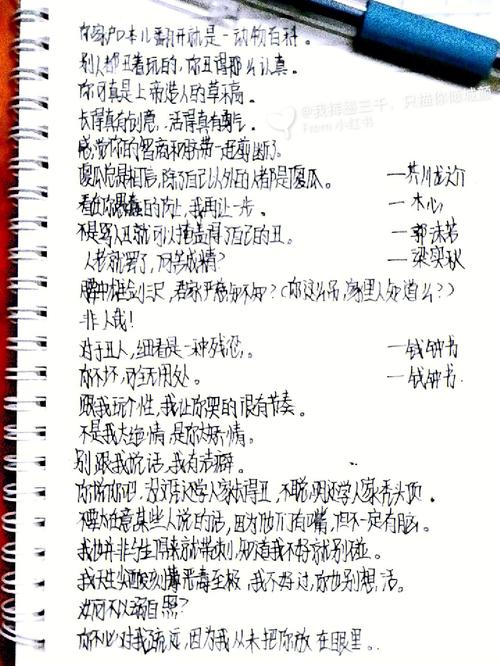 你家户口本儿翻开就是一动物百科。
别人都丑着玩的，你丑得那么认真。
你可真是上帝造人的草稿。
长得真有创意，活得真有勇气。
感觉你的智商和脐带一起剪断了。
傻瓜总是相信，除了自己以外的人都是傻瓜。 —芥川龙之介
看在你愚蠢的份上，我再让一步。 —木心
不是骂人丑就可以掩盖得了自己的丑。 —郭沫若
人老就罢了，何苦成精？ —梁实秋
腰中雄剑长三尺，君家严慈知不知？（你这么吊，家里人知道么？）
非人哉！
对于丑人，细看是一种残忍。 —钱钟书
你不坏，可全无用处。 —钱钟书
跟我玩个性，我让你哭的很有节奏。
不是我太绝情，是你太矫情。
别跟我说话，我有洁癖。
你说你吧，没西施还学人家长得丑，不聪明还学人家秃头顶。
不要太在意某些人说的话，因为他们有嘴，但不一定有脑。
我也并非生得来就带刺，知道我不好就别碰。
我天生尖酸刻薄恶毒至极，我不好过，你也别想活。
汝何不以溺自照？
你不必对我疏远，因为我从未把你放在眼里。
@我持墨三千，只描你
From 小红书